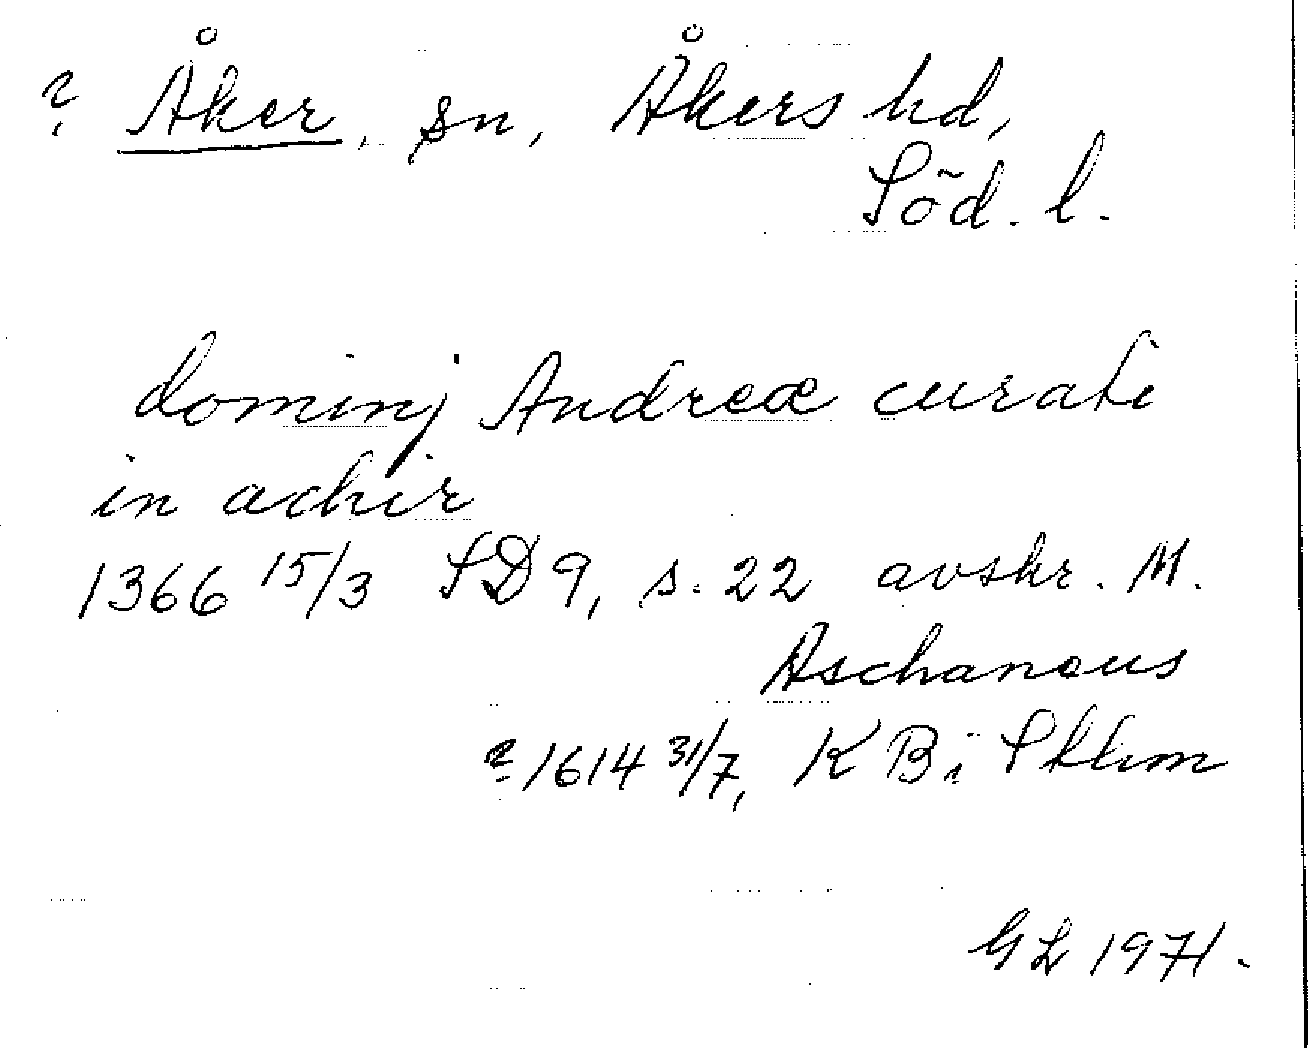 ? Åker, sn, Åkers hd,
Söd. l.
dominj Andreæ curati
in achir
1366 15/3 SD 9, s. 22 avskr. M.
Aschaneus
?1614 31/7, KB i Sthlm
GL 1971.